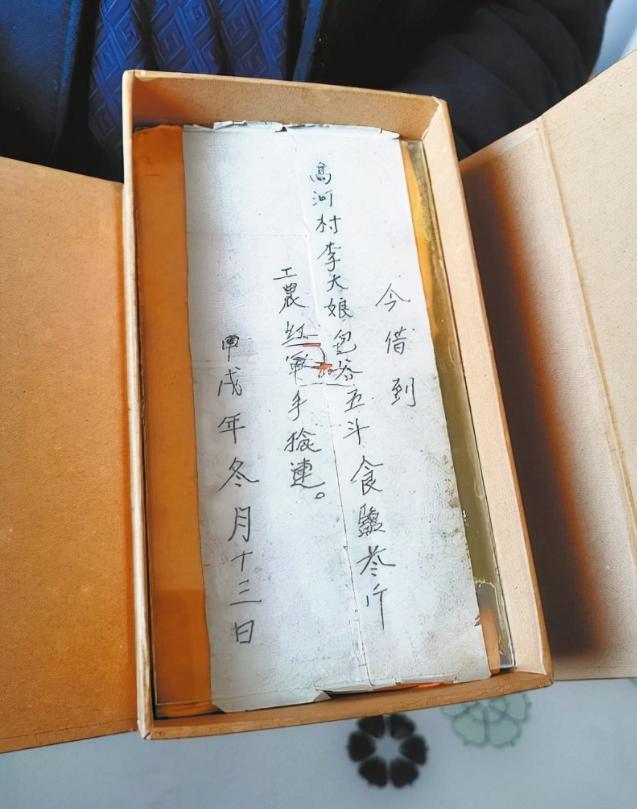 今借到
高河村李大娘包谷五斗食鹽叁斤
工農紅軍手捡連。
甲戌年冬月十三日